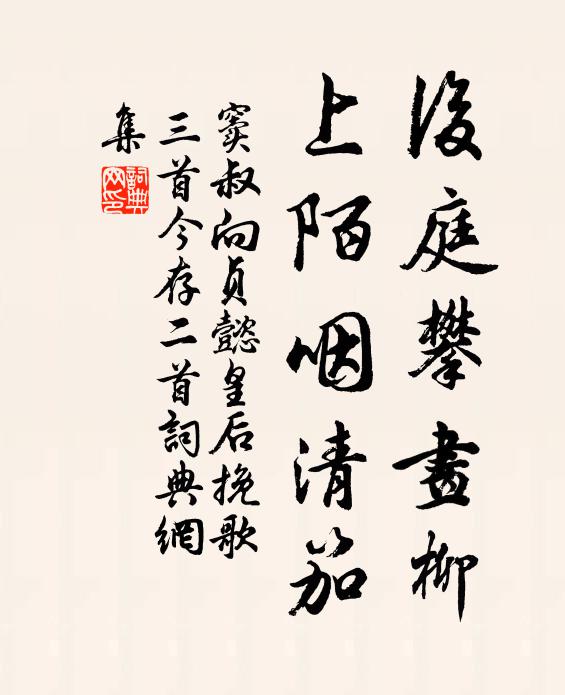 後庭攀畫柳
上陌咽清笳
竇叔向貞懿皇后挽歌
三首今存二首詞典網
集
詞典网印